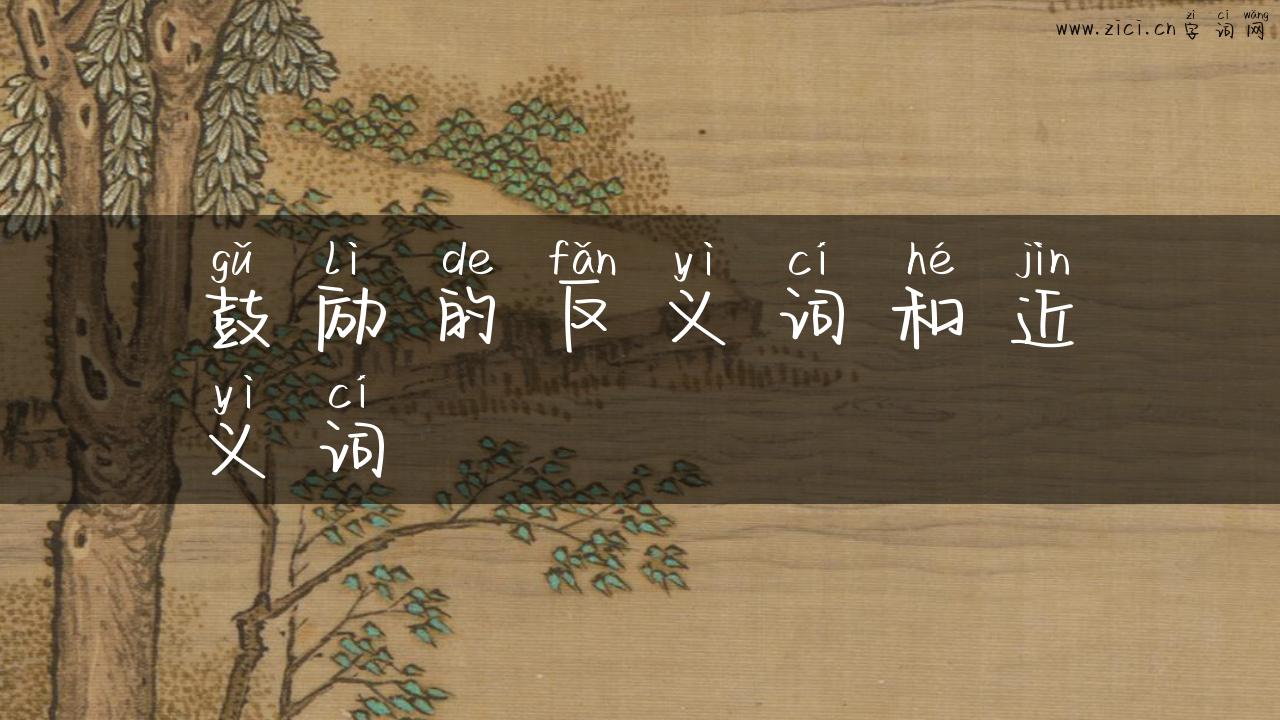 zì cí wǎng
www.zici.cn 字词网
gǔ lì de fǎn yì cí hé jìn
鼓励的反义词和近
yì cí
义词